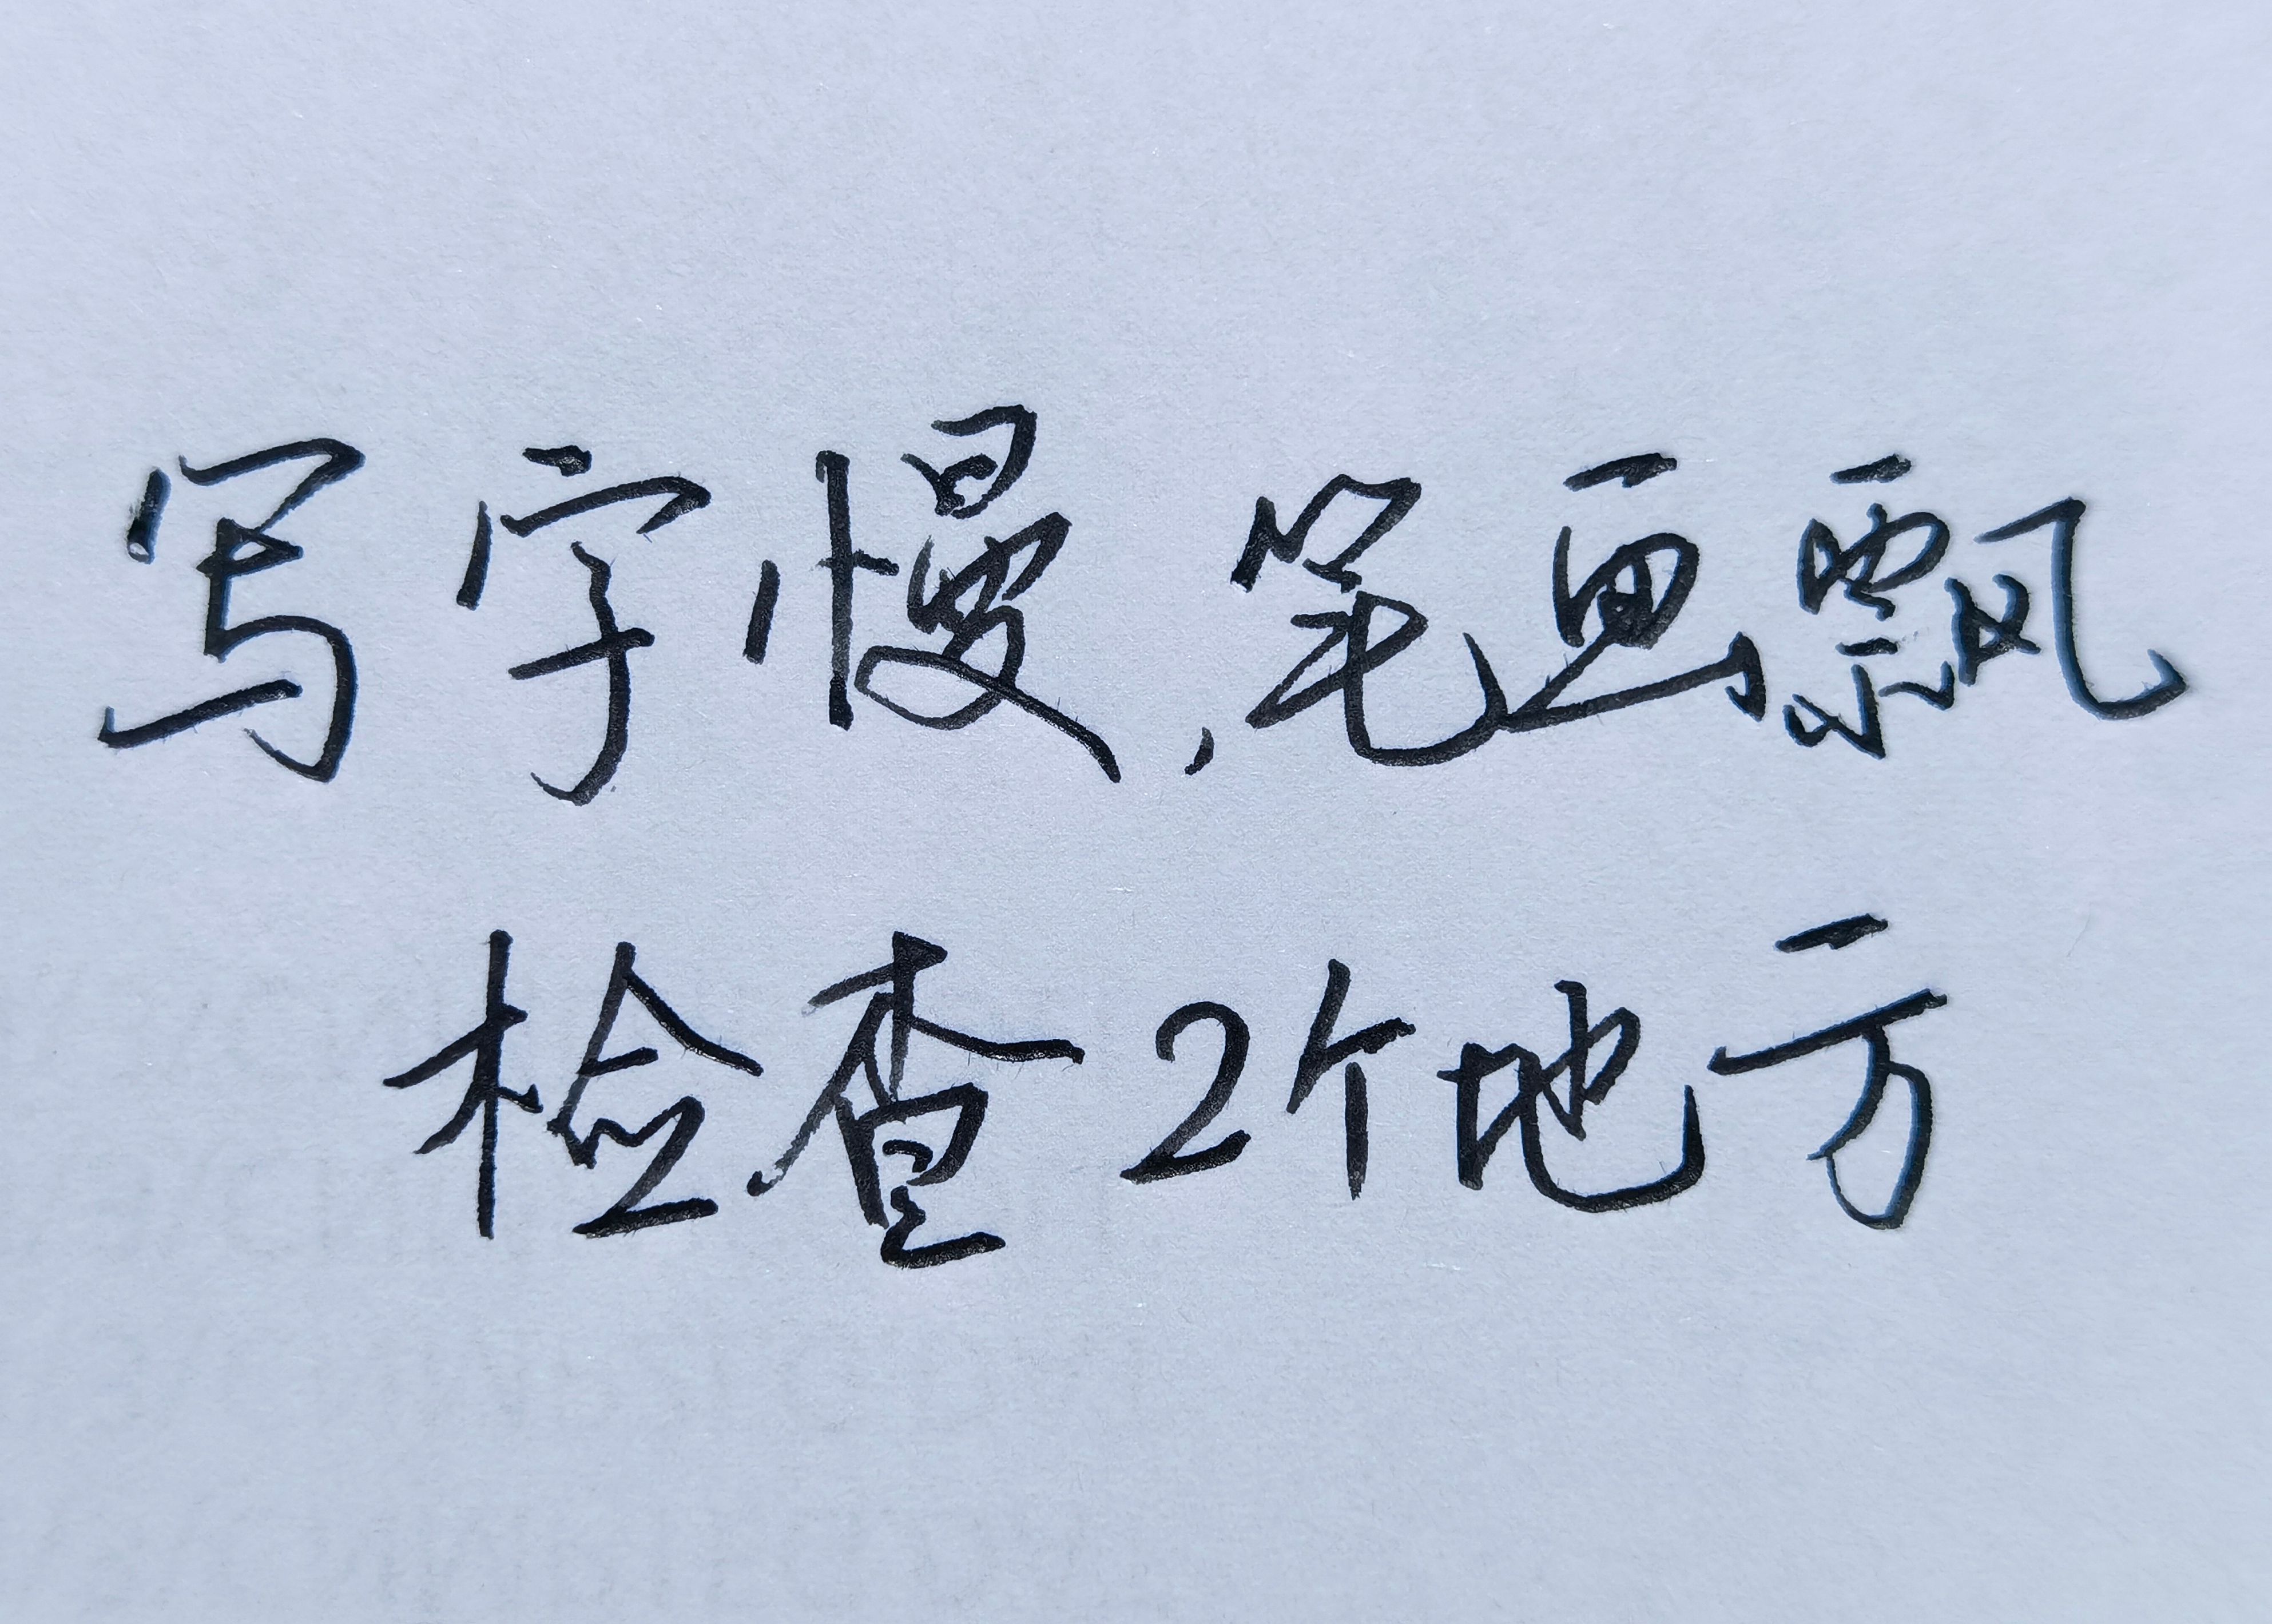 写字慢,笔画飘
检查2个地方